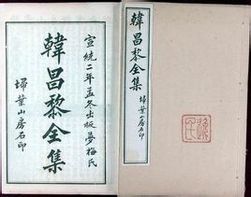 韓昌黎全集
掃葉山房石印
宣統二年孟冬出版夢梅氏
韓昌黎全集
掃葉山房石印